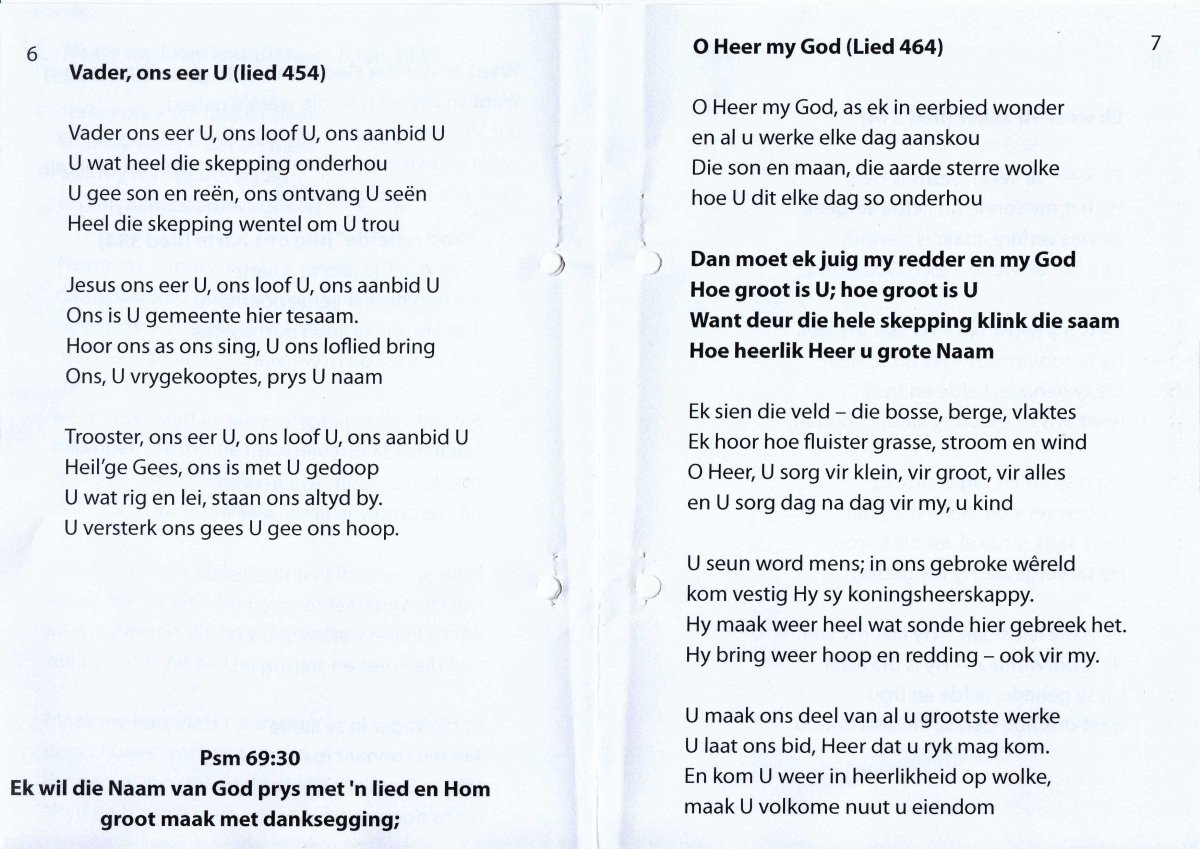 6
Vader, ons eer U (lied 454)
Vader ons eer U, ons loof U, ons aanbid U
U wat heel die skepping onderhou
U gee son en reën, ons ontvang U seën
Heel die skepping wentel om U trou
Jesus ons eer U, ons loof U, ons aanbid U
Ons is U gemeente hier tesaam.
Hoor ons as ons sing, U ons loflied bring
Ons, U vrygekooptes, prys U naam
Trooster, ons eer U, ons loof U, ons aanbid U
Heil’ge Gees, ons is met U gedoop
U wat rig en lei, staan ons altyd by.
U versterk ons gees U gee ons hoop.
Psm 69:30
Ek wil die Naam van God prys met 'n lied en Hom
groot maak met danksegging;
7
O Heer my God (Lied 464)
O Heer my God, as ek in eerbied wonder
en al u werke elke dag aanskou
Die son en maan, die aarde sterre wolke
hoe U dit elke dag so onderhou
Dan moet ek juig my redder en my God
Hoe groot is U; hoe groot is U
Want deur die hele skepping klink die saam
Hoe heerlik Heer u grote Naam
Ek sien die veld – die bosse, berge, vlaktes
Ek hoor hoe fluister grasse, stroom en wind
O Heer, U sorg vir klein, vir groot, vir alles
en U sorg dag na dag vir my, u kind
U seun word mens; in ons gebroke wêreld
kom vestig Hy sy koningsheerskappy.
Hy maak weer heel wat sonde hier gebreek het.
Hy bring weer hoop en redding – ook vir my.
U maak ons deel van al u grootste werke
U laat ons bid, Heer dat u ryk mag kom.
En kom U weer in heerlikheid op wolke,
maak U volkome nuut u eiendom